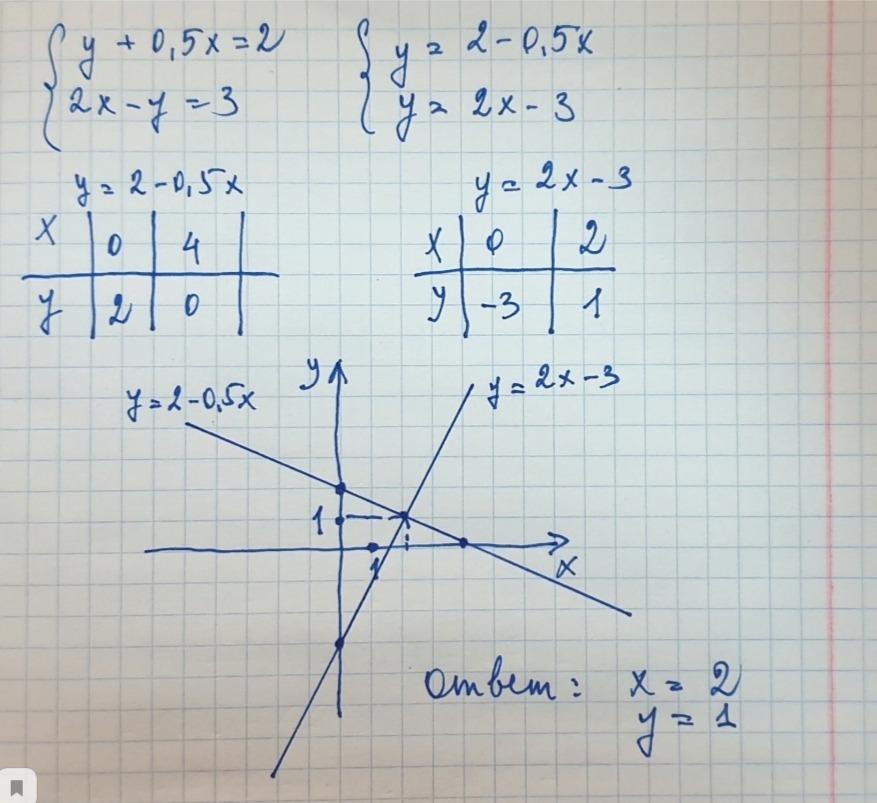 y + 0,5x = 2
2x - y = 3
y = 2 - 0,5x
y = 2x - 3
y = 2 - 0,5x
x 0 4
y 2 0
y = 2x - 3
x 0 2
y -3 1
y = 2 - 0,5x
y
y = 2x - 3
1
1
x
Ответ: x = 2
y = 1